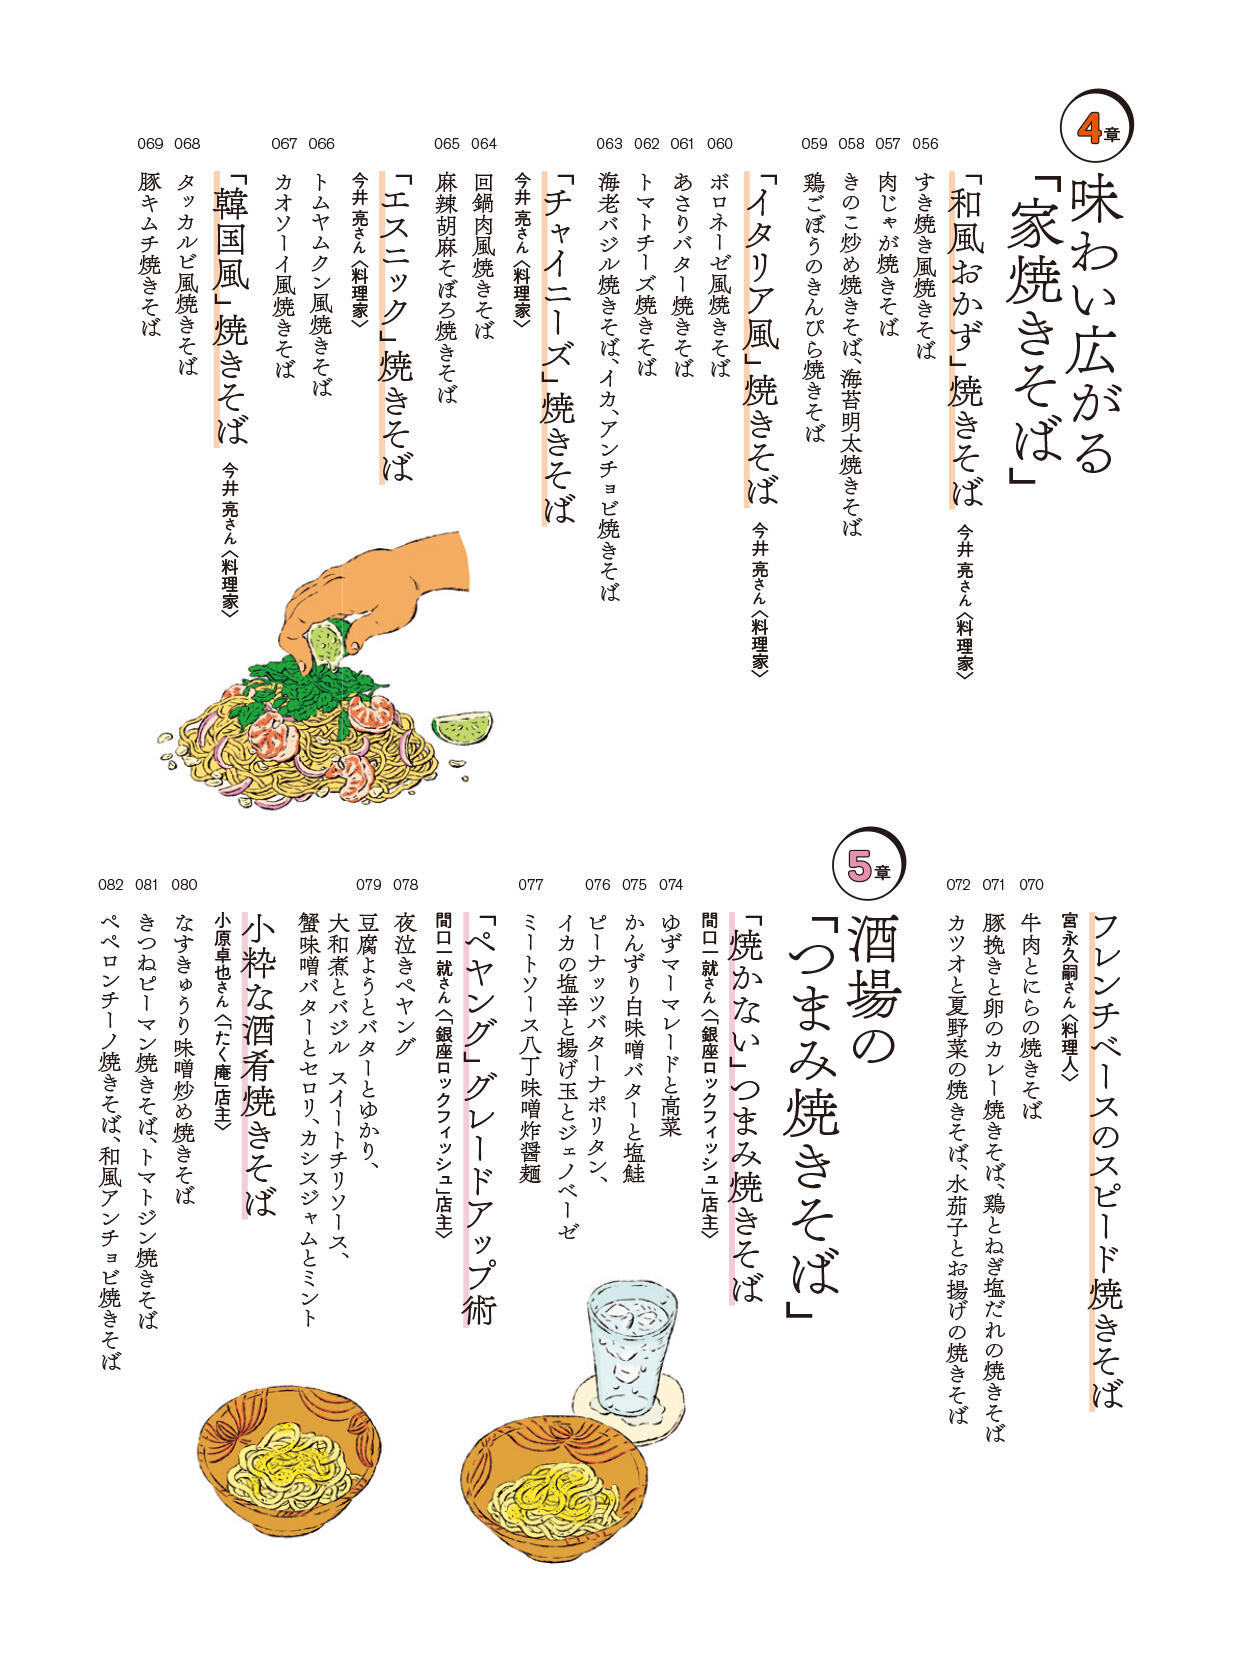 4章
味わい広がる
「家焼きそば」
「和風おかず」焼きそば 今井 亮さん〈料理家〉
056 すき焼き風焼きそば
057 肉じゃが焼きそば
058 きのこ炒め焼きそば、海苔明太焼きそば
059 鶏ごぼうのきんぴら焼きそば
「イタリア風」焼きそば 今井 亮さん〈料理家〉
060 ボロネーゼ風焼きそば
061 あさりバター焼きそば
062 トマトチーズ焼きそば
063 海老バジル焼きそば、イカ、アンチョビ焼きそば
「チャイニーズ」焼きそば
今井 亮さん〈料理家〉
064 回鍋肉風焼きそば
065 麻辣胡麻そぼろ焼きそば
「エスニック」焼きそば
今井 亮さん〈料理家〉
066 トムヤムクン風焼きそば
067 カオソーイ風焼きそば
「韓国風」焼きそば 今井 亮さん〈料理家〉
068 タッカルビ風焼きそば
069 豚キムチ焼きそば
フレンチベースのスピード焼きそば
宮永久嗣さん〈料理人〉
070 牛肉とにらの焼きそば
071 豚挽きと卵のカレー焼きそば、鶏とねぎ塩だれの焼きそば
072 カツオと夏野菜の焼きそば、水茄子とお揚げの焼きそば
5章
酒場の
「つまみ焼きそば」
「焼かない」つまみ焼きそば
間口一就さん〈「銀座ロックフィッシュ」店主〉
074 ゆずマーマレードと高菜
075 かんずり白味噌バターと塩鮭
076 ピーナッツバターナポリタン、
イカの塩辛と揚げ玉とジェノベーゼ
077 ミートソース八丁味噌炸醤麺
「ペヤング」グレードアップ術
間口一就さん〈「銀座ロックフィッシュ」店主〉
078 夜泣きペヤング
079 豆腐ようとバターとゆかり、
大和煮とバジル スイートチリソース、
蟹味噌バターとセロリ、カシスジャムとミント
小粋な酒肴焼きそば
小原卓也さん〈「たく庵」店主〉
080 なすきゅうり味噌炒め焼きそば
081 きつねピーマン焼きそば、トマトジン焼きそば
082 ペペロンチーノ焼きそば、和風アンチョビ焼きそば